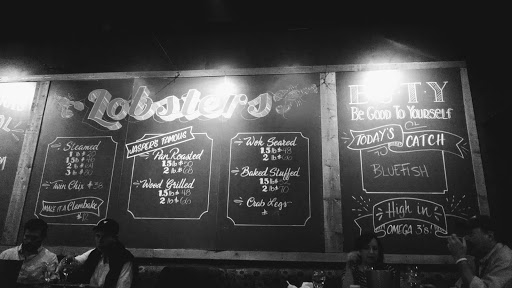 Lobsters
Steamed
1 lb $20
1.5 lb $40
2 lb
3 lb $80
Twin Chix $38
MAKE IT A Clambake
JASPER'S FAMOUS
Pan Roasted
1.5 lb $50
2 lb $68
Wood Grilled
1.5 lb $48
2 lb $66
Wok Seared
1.5 lb $48
2 lb $66
Baked Stuffed
1.5 lb $52
2 lb $70
Crab Legs
$
Be Good To Yourself
TODAY'S CATCH
BLUEFISH
High in
OMEGA 3's!